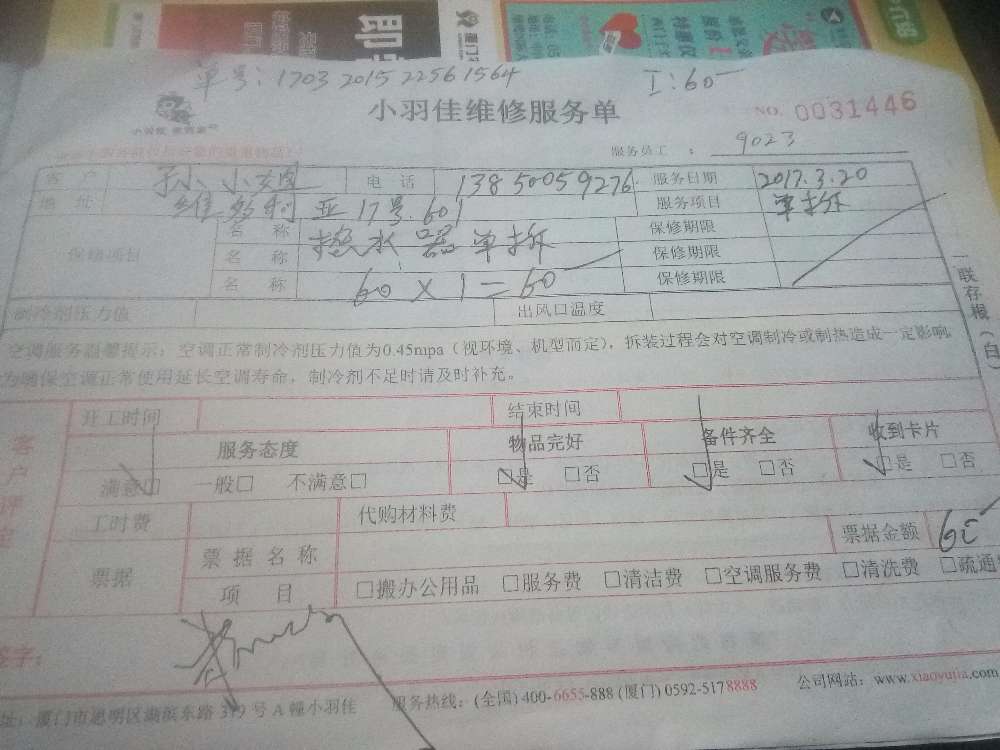 单号: 1703 2015 22561564 I:60
小羽佳维修服务单
NO. 0031446
服务员工 : 9023
客户 孙小姐 电话 13850059276 服务日期 2017.3.20
地址 维多利亚17号.601 服务项目 单拆
保修项目 名称 热水器单拆 保修期限
名称 60×1=60 保修期限
名称 保修期限
制冷剂压力值 出风口温度
空调服务温馨提示:空调正常制冷剂压力值为0.45mpa(视环境、机型而定),拆装过程会对空调制冷或制热造成一定影响,
为确保空调正常使用延长空调寿命,制冷剂不足时请及时补充。
一联存根(白)
客户评定
开工时间 结束时间
服务态度 物品完好 备件齐全 收到卡片
满意□ 一般□ 不满意□ □是 □否 □是 □否 □是 □否
工时费 代购材料费
票据 票据名称 票据金额 60
项目 □搬办公用品 □服务费 □清洁费 □空调服务费 □清洗费 □疏通
签字:
址:厦门市思明区湖滨东路319号A幢小羽佳 服务热线:(全国) 400-6655-888 (厦门) 0592-5178888 公司网站:www.xiaoyujia.com